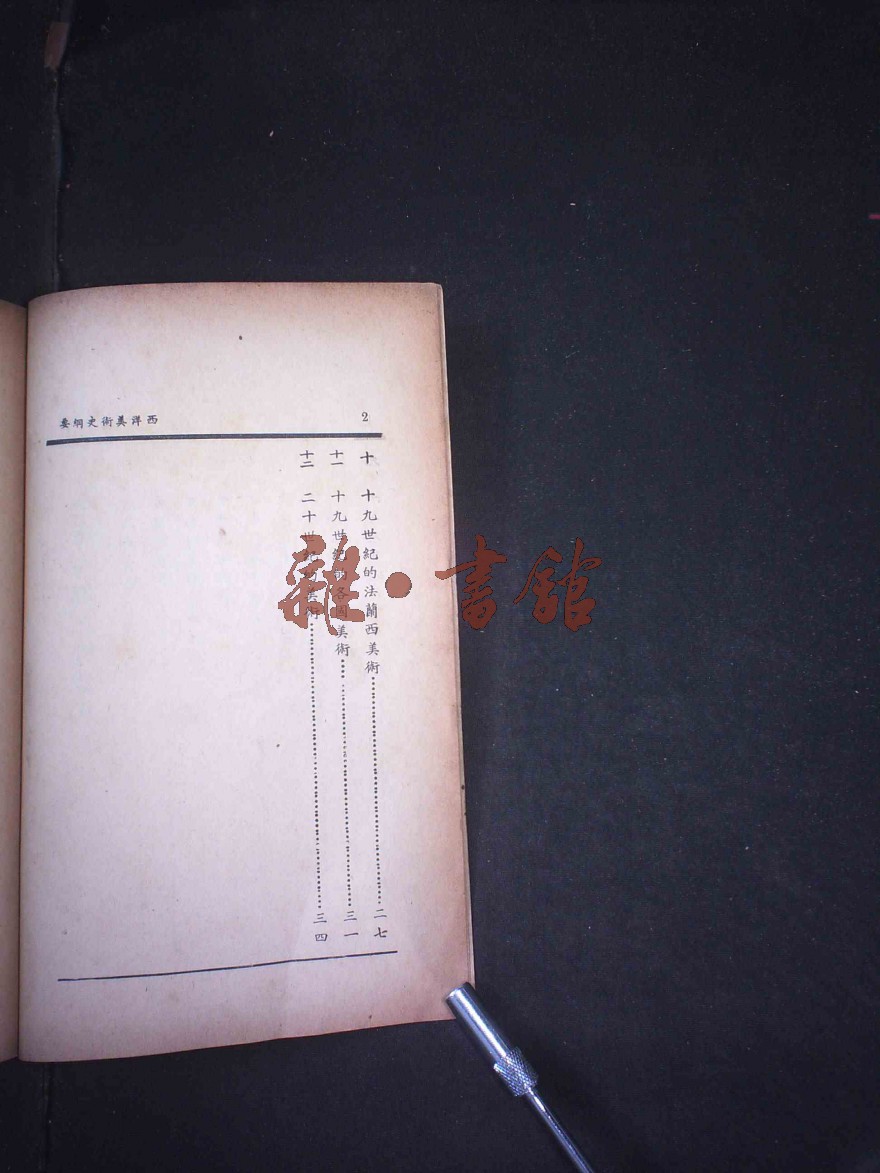 西洋美術史綱要
2
十 十九世紀的法蘭西美術 二七
十一 十九世紀的各國美術 三一
十二 二十世紀的美術 三四
雜·書館